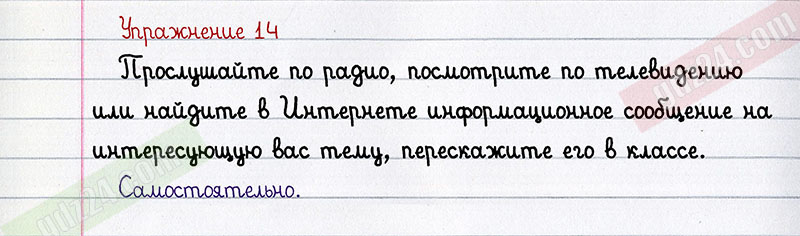 Упражнение 14
Прослушайте по радио, посмотрите по телевидению
или найдите в Интернете информационное сообщение на
интересующую вас тему, перескажите его в классе.
Самостоятельно.
gdz24.com
gdz24.com